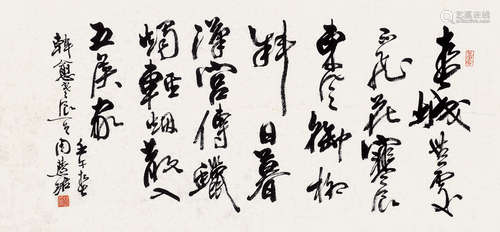 春城無處
不飛花寒食
東風御柳
斜日暮
漢宮傳蠟
燭輕烟散入
五侯家
壬午
周慧珺